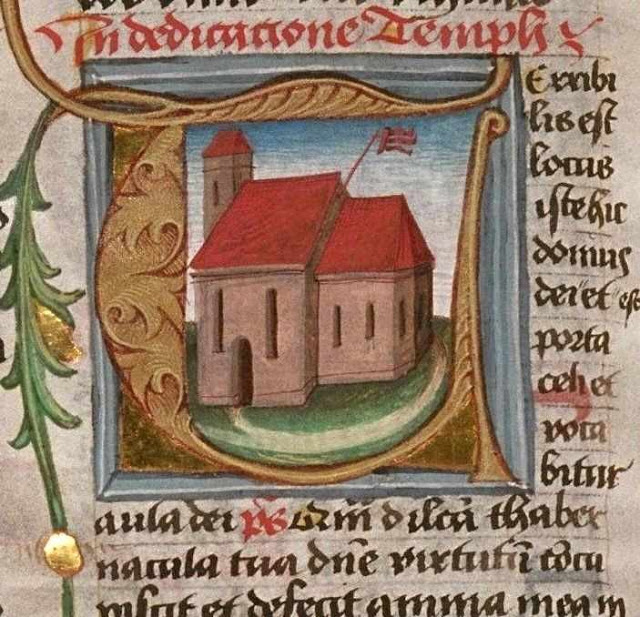 In dedicacione Templi
Erribi
lis est
locus
iste hic
domus
dei et est
porta
celi et
voca
bitur
aula dei ps Qm̄ dilcā thaber
nacula tua dn̄e virtutū cōcu
piscit et defecit amima mea in